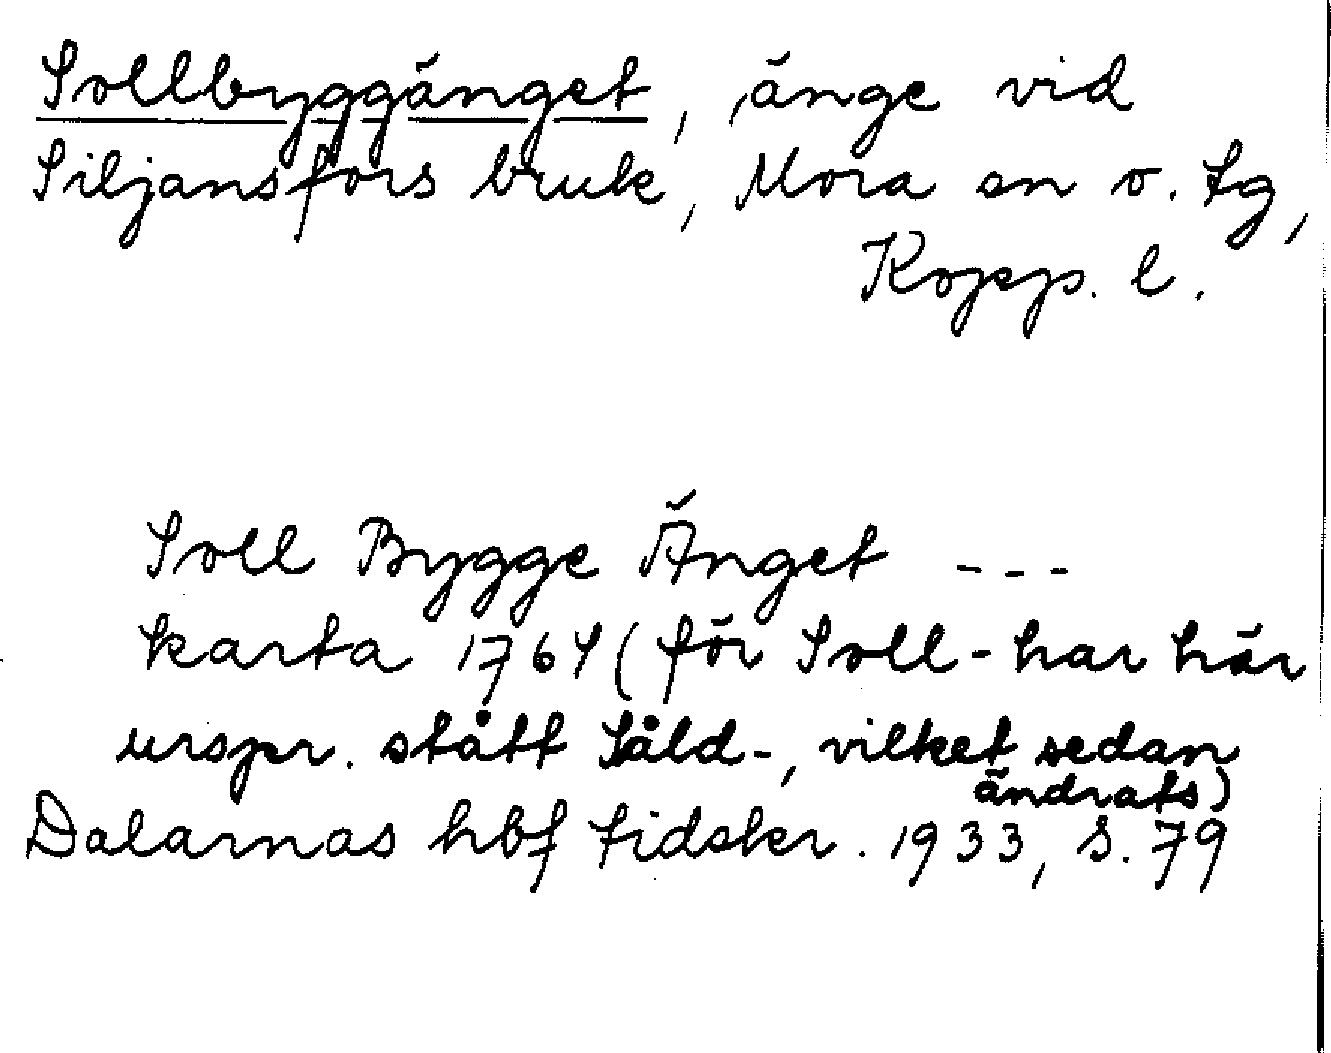 Sollbyggänget, änge vid
Siljansfors bruk, Mora sn o. tg,
Kopp. l.
Soll Bygge Änget ---
karta 1764 (för Soll- har här
urspr. stått Såld-, vilket sedan
ändrats)
Dalarnas hbf tidskr. 1933, S. 79